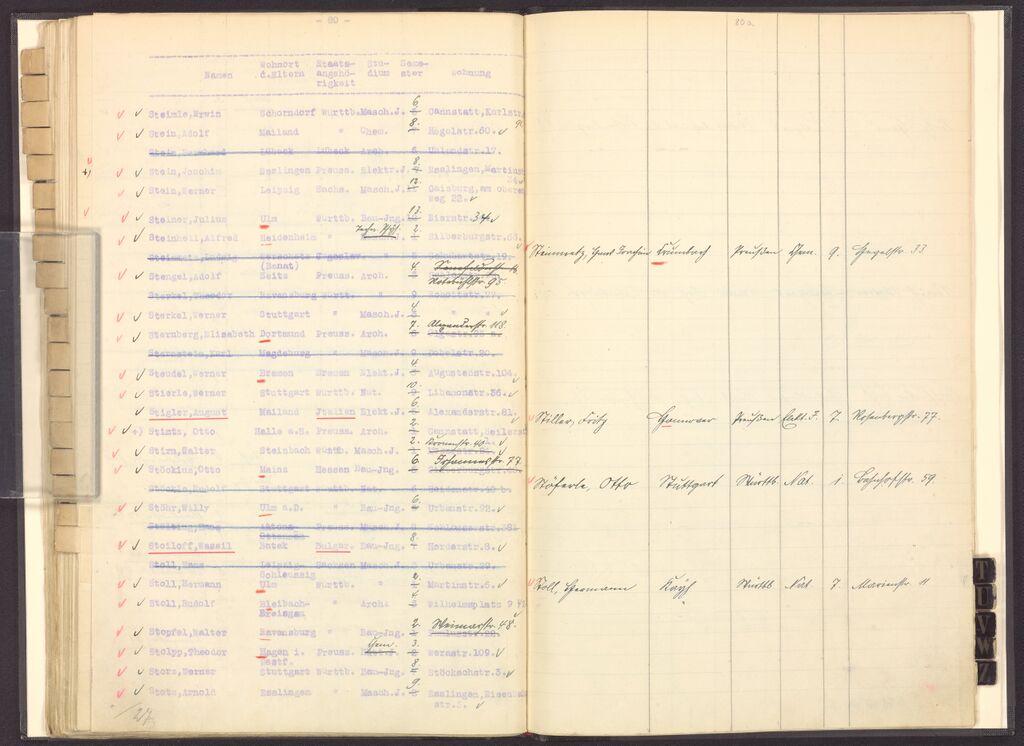 - 80 -
Namen Wohnort d.Eltern Staats-angehö-rigkeit Stu-dium Seme-ster Wohnung
Steimle, Erwin Schorndorf Württb. Masch.J. 6. Cannstatt, Karlstr.
Stein, Adolf Mailand " Chem. 8. Hegelstr.60.
Stein, Bernhard Lübeck Lübeck Arch. Uhlandstr.17.
Stein, Joachim Esslingen Preuss. Elektr.J. 8. Esslingen, Martinstr.
Stein, Werner Leipzig Sachs. Masch.J. 12. Gaisburg, am oberen
Weg 22.
Steiner, Julius Ulm Württb. Bau-Jng. 13. Bierstr. 34.
Steinheil, Alfred Heidenheim " 2. Silberburgstr.66.
Steinmetz, Ludwig Werschetz Jugoslav. 
(Banat)
Stengel, Adolf Zeitz Preuss. Arch. 4. Rotebühlstr. 95.
Sterkel, Theodor Ravensburg Württ. " Schottstr.27.
Sterkel, Werner Stuttgart " Masch.J. 4. "
Sternberg, Elisabeth Dortmund Preuss. Arch. 7. Alexanderstr. 118.
Sternstein, Karl Magdeburg " Masch.J. 9 Dobelstr.20.
Steudel, Werner Bremen Bremen Elekt.J. 4. Augustenstr.104.
Stierle, Berner Stuttgart Württb. Nat. 10. Libanonstr.36.
Stigler, August Mailand Jtalien Elekt.J. 6. Alexanderstr.81.
Stintz, Otto Halle a.S. Preuss. Arch. 2. Cannstatt, Seilerst
Stirm, Walter Steinbach Württb. Masch.J. 2. Kronenstr. 40
Stöckius, Otto Mainz Hessen Bau-Jng. 6. Johannesstr. 77.
Stöckle, Rudolf Stuttgart Württb. Nat. Heidenstr.10 b.
Stöhr, Willy Ulm a.D. " Bau-Jng. 6. Urbanstr.92.
Altona-Ottensen Preuss. Masch.J. Schlossstr.
Stoiloff, Wassil Butak Bulgar. Bau-Jng. 8. Herderstr.8.
Stoll, Hans Leipzig- Sachsen Masch.J. Urbanstr.29.
Schleussig
Stoll, Hermann Ulm Württb. " 2. Martinstr.6.
Stoll, Rudolf Bleibach- " Arch. 4. Wilhelmsplatz 9
Breisgau
Stopfel, Walter Ravensburg " Bau-Jng. 2. Weimarstr. 48.
Stolpp, Theodor Hagen i. Preuss. Chem. 3. Werastr.109.
Westf.
Storz, Werner Stuttgart Württb. Bau-Jng. 8. Stöckachstr.3.
Stotz, Arnold Esslingen " Masch.J. 9. Esslingen, Eisenba
str.5.
27
80a
Steinmetz, Hans Joachim Preußen Chem. 9. Hegelstr. 33
Stiller, Fritz Hannover Preußen Elekt. J. 7. Rosenbergstr. 77.
Stöferle, Otto Stuttgart Württb Nat. 1. Bahnhofstr. 59.
Stoll, Hermann Kayh Württb Nat 7. Marienstr. 11
T
U
V
W
Z